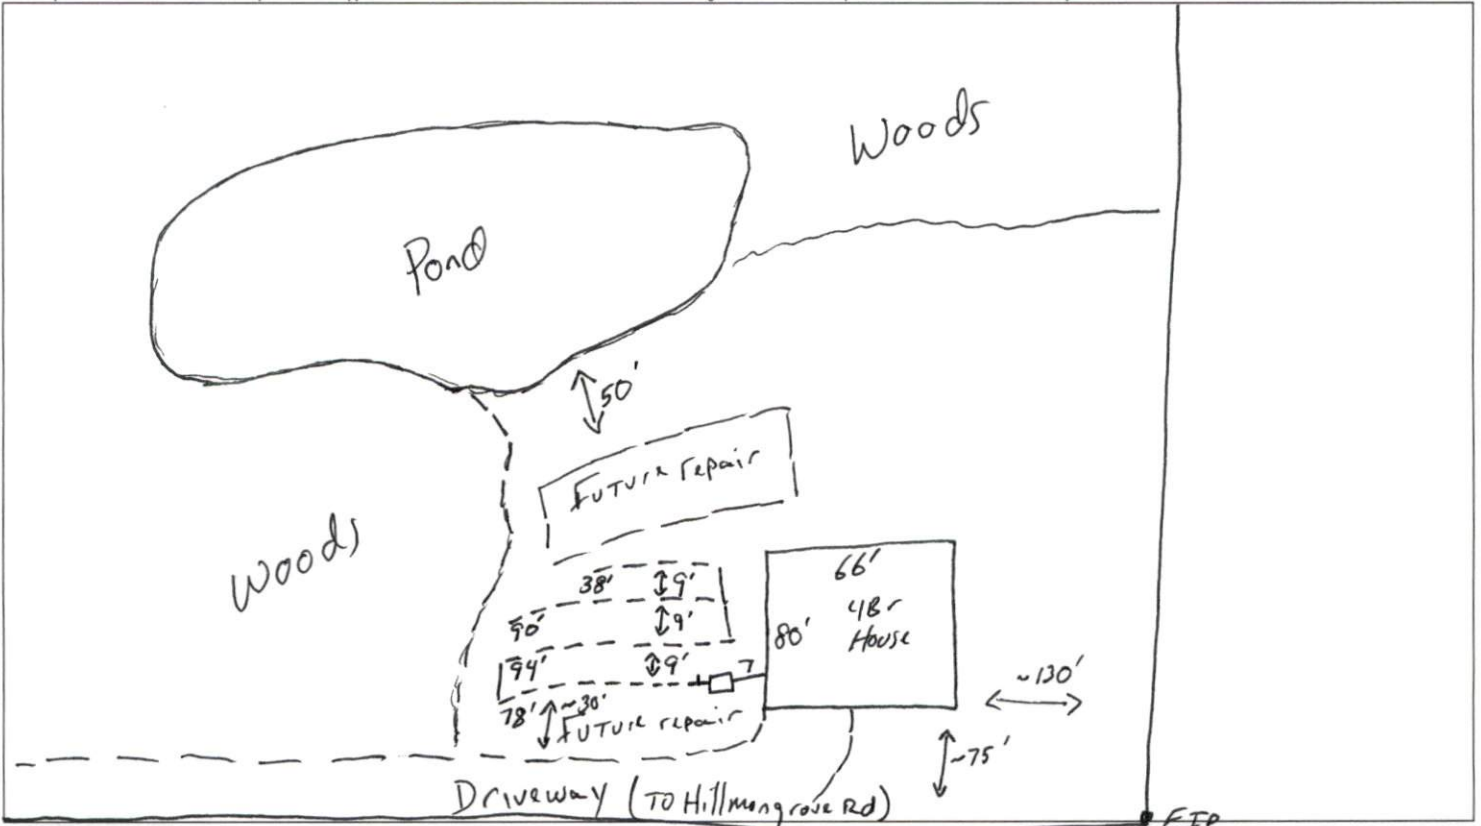 Woods
Pond
50'
Future repair
Woods
38'
9'
90'
9'
94'
9'
78'
~30'
Future repair
7
66'
80'
4Br
House
~130'
~75'
Driveway (To Hillmongrove Rd)
EIP